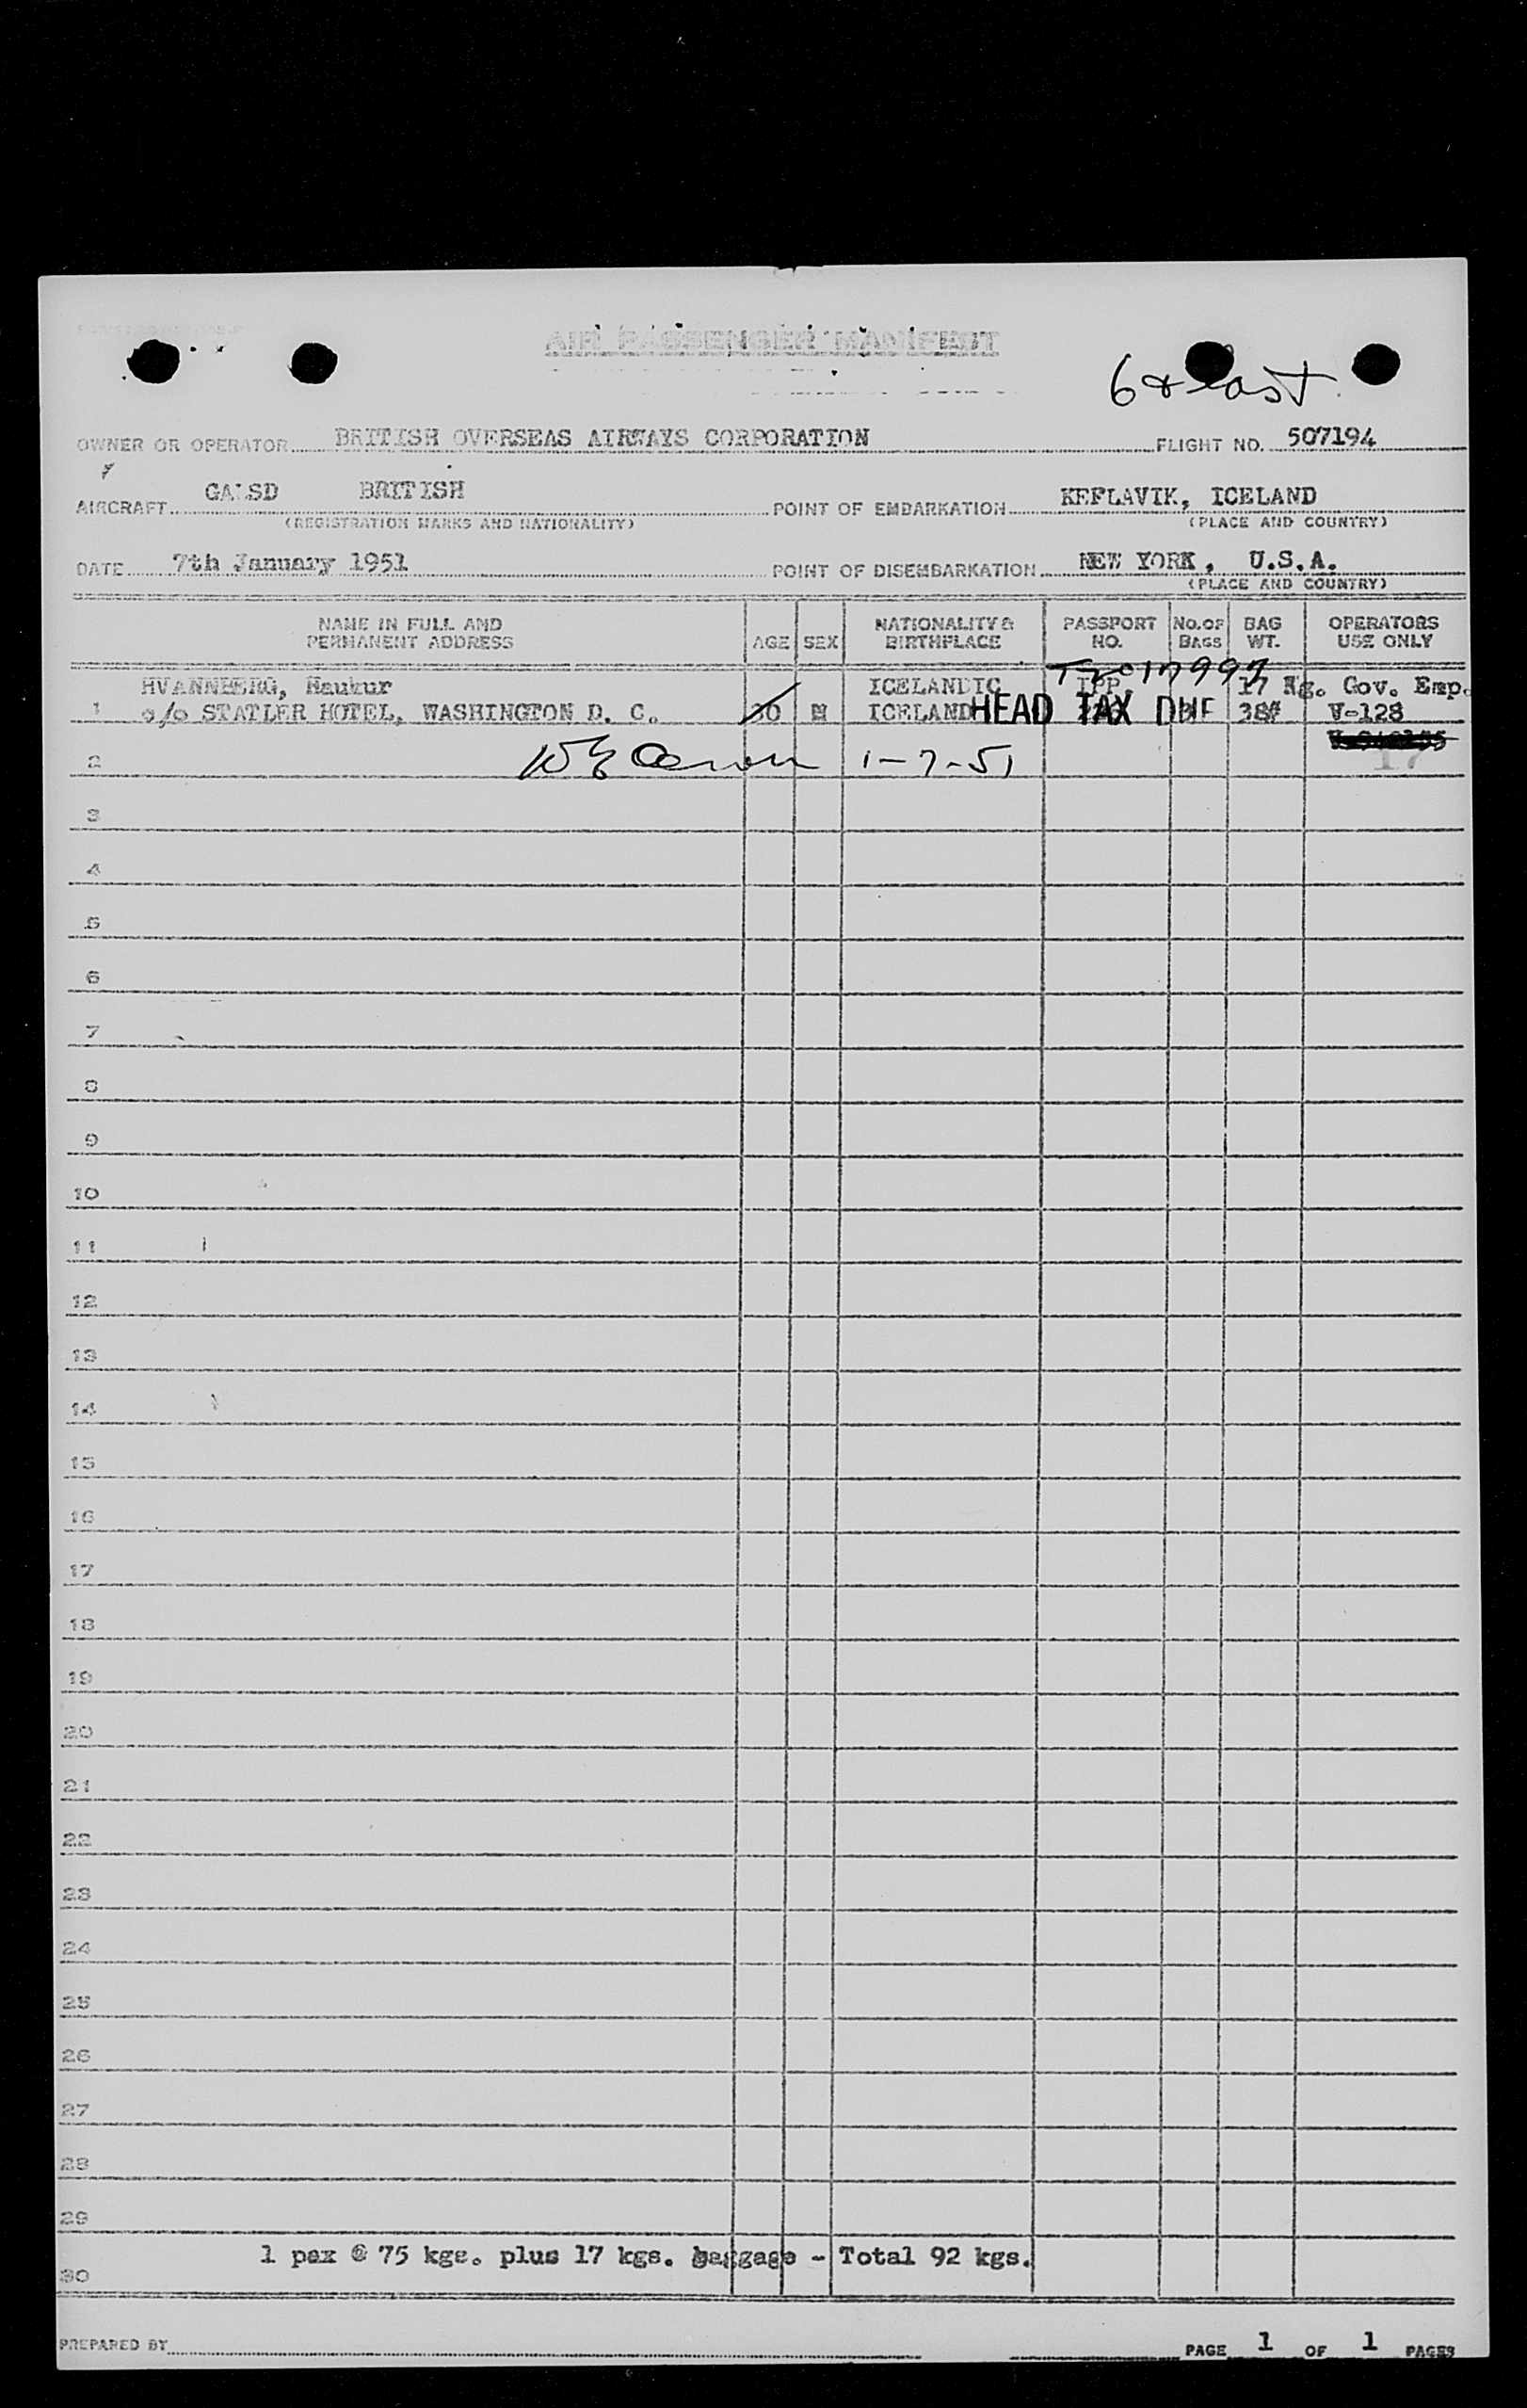 AIR PASSENGER MANIFEST
6 & last
OWNER OR OPERATOR BRITISH OVERSEAS AIRWAYS CORPORATION FLIGHT NO. 507194
AIRCRAFT BRITISH POINT OF EMBARKATION KEFLAVIK, ICELAND
(REGISTRATION MARKS AND NATIONALITY) (PLACE AND COUNTRY)
DATE 7th January 1951 POINT OF DISEMBARKATION NEW YORK, U.S.A.
(PLACE AND COUNTRY)
NAME IN FULL AND PERMANENT ADDRESS AGE SEX NATIONALITY & BIRTHPLACE PASSPORT NO. No. OF BAGS BAG WT. OPERATORS USE ONLY
HVANNBERG, Haukur ICELANDIC 17 Kg. Gov. Emp.
1 c/o STATLER HOTEL, WASHINGTON D. C. 30 M ICELAND HEAD TAX DUE 38# V-128
2 1-7-51 17
3
4
5
6
7
8
9
10
11
12
13
14
15
16
17
18
19
20
21
22
23
24
25
26
27
28
29
1 pax @ 75 kgs. plus 17 kgs. baggage - Total 92 kgs.
30
PREPARED BY PAGE 1 OF 1 PAGES